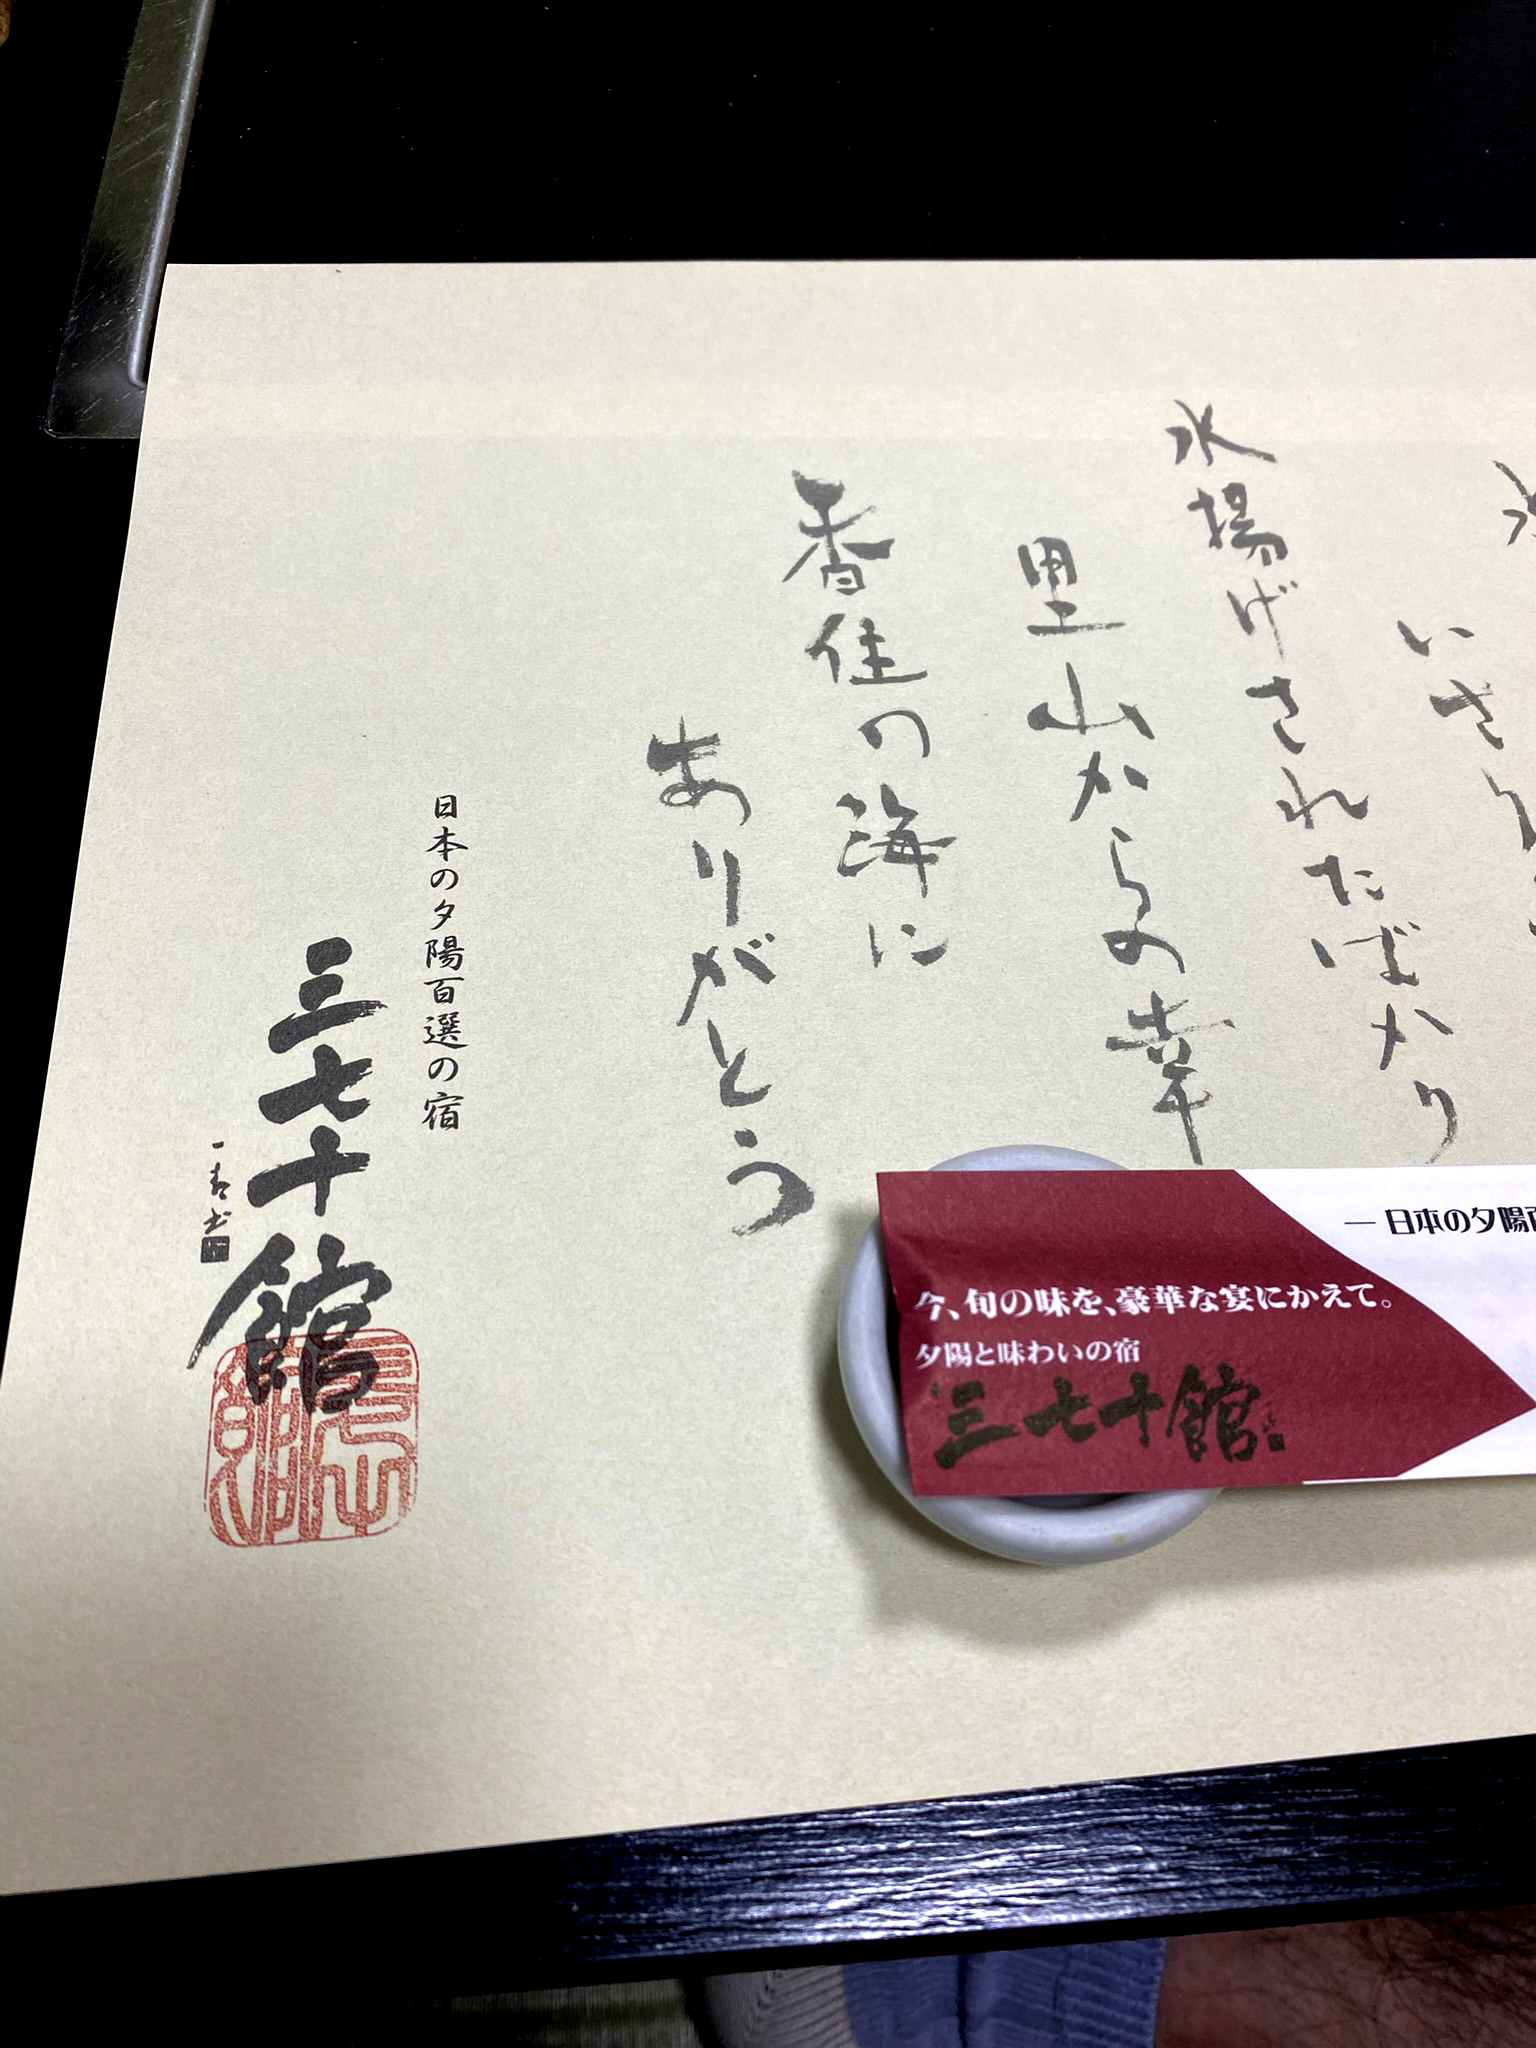 いさり
水揚げされたばかり
里山からの幸
香住の海に
ありがとう
日本の夕陽百選の宿
三七十館
日本の夕陽
今、旬の味を、豪華な宴にかえて。
夕陽と味わいの宿
三七十館